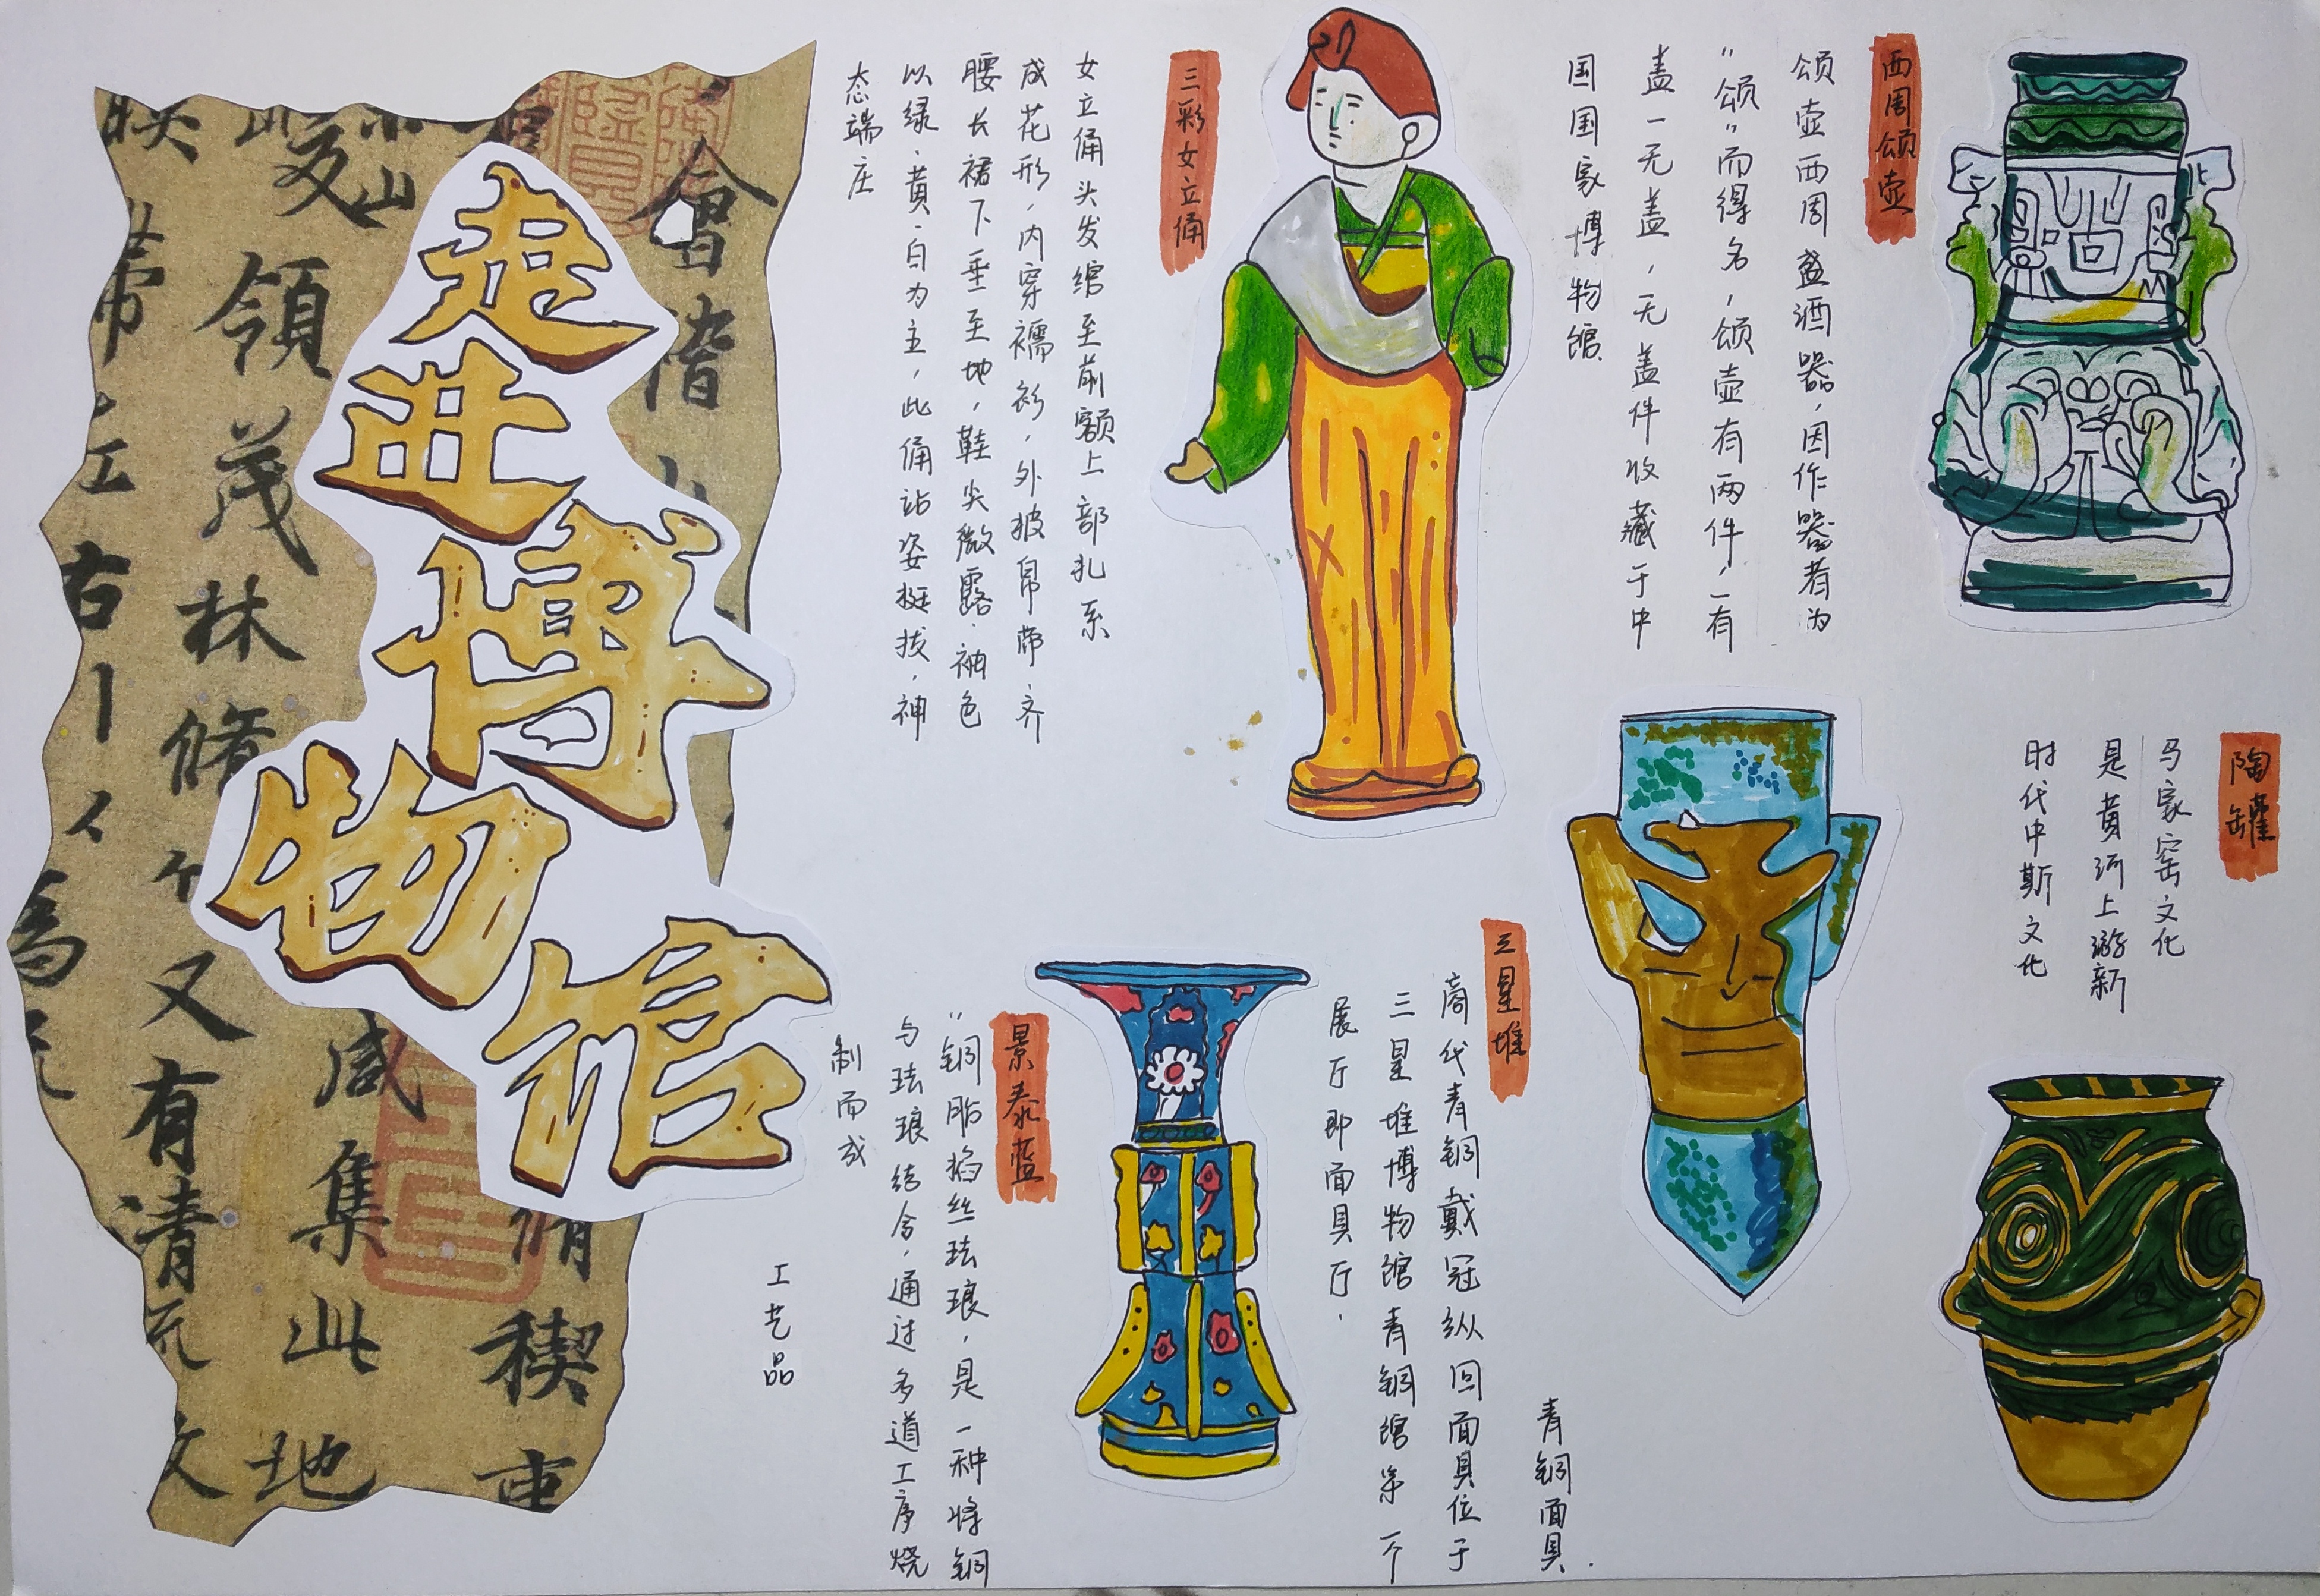 走进博物馆
西周颂壶
颂壶西周盛酒器,因作器者为
"颂"而得名,颂壶有两件,一有
盖一无盖,无盖件收藏于中
国国家博物馆.
三彩女立俑
女立俑头发绾至前额上部扎系
成花形,内穿襦衫,外披帛带.齐
腰长裙下垂至地,鞋尖微露.袖色
以绿.黄.白为主,此俑站姿挺拔,神
态端庄
陶罐
马家窑文化
是黄河上游新
时代中斯文化
三星堆
青铜面具.
商代青铜戴冠纵回面具位于
三星堆博物馆青铜馆第一个
展厅即面具厅.
景泰蓝
"铜胎掐丝珐琅,是一种将铜
与珐琅结合,通过多道工序烧
制而成
工艺品
會
領茂林脩
又有清
咸集此地
脩稧